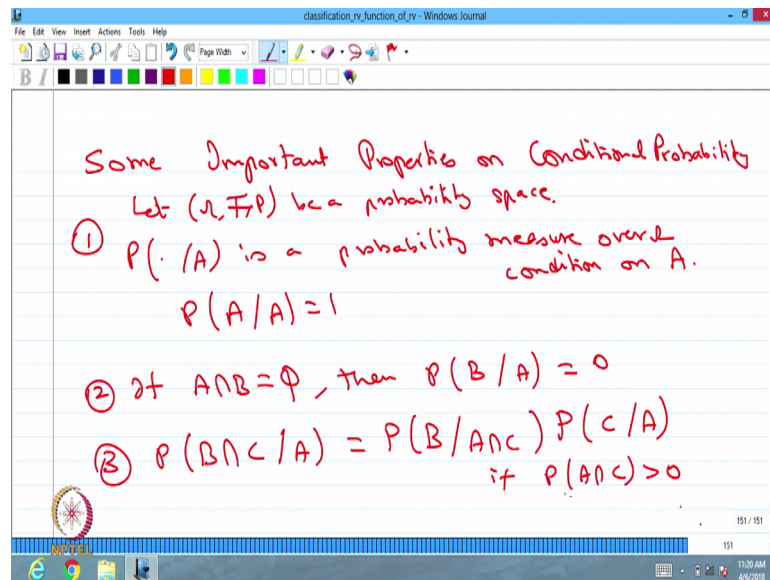 classification_rv_function_of_rv - Windows Journal
File Edit View Insert Actions Tools Help
Page Width
B I
Some Important Properties on Conditional Probability
Let (Ω, F, P) be a probability space.
① P(· /A) is a probability measure over Ω
condition on A.
P(A/A) = 1
② If A∩B = Φ, then P(B/A) = 0
③ P(B∩C/A) = P(B/A∩C) P(C/A)
if P(A∩C) > 0
151 / 151
NPTEL
151
11:20 AM
4/6/2018